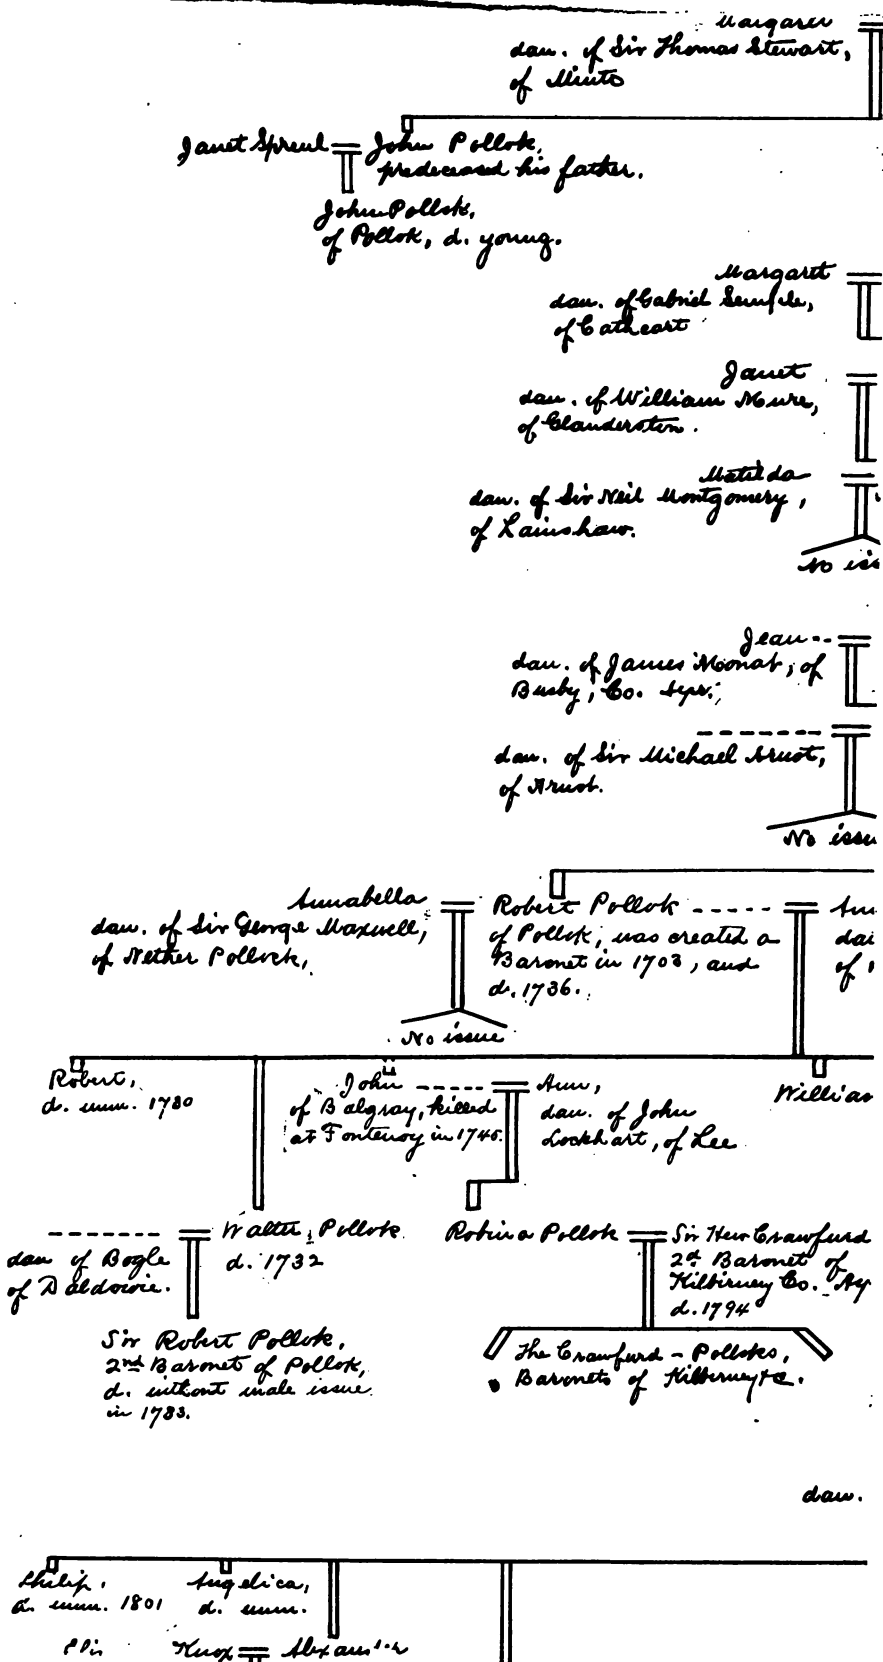 Margaret
dau. of Sir Thomas Stewart,
of Minto
Janet Spreul
John Pollok,
predeceased his father.
John Pollok,
of Pollok, d. young.
Margaret
dau. of Gabriel Semple,
of Cathcart
Janet
dau. of William Mure,
of Glanderston.
Matilda
dau. of Sir Neil Montgomery,
of Lainshaw.
No
Jean
dau. of James of
Busby, Co.
dau. of Sir Michael
of
No
Annabella
dau. of Sir George Maxwell,
of Nether Pollock,
No issue
Robert Pollok
of Pollok, was created a
Baronet in 1703, and
d. 1736.
of
Robert,
d. unm. 1780
John
of Balgray, killed
at Fontenoy in 1745.
Ann,
dau. of John
Lockhart, of Lee
dau of Bogle
of Daldowie.
Walter Pollok
d. 1732
Robina Pollok
Sir Hew Crawfurd
2d Baronet of
Kilbirney Co. Ay
d. 1794
Sir Robert Pollok,
2nd Baronet of Pollok,
d. without male issue
in 1783.
The Crawfurd - Polloks,
Baronets of Kilbirney &c.
dau.
Philip,
d. unm. 1801
Angelica,
d. unm.
Knox